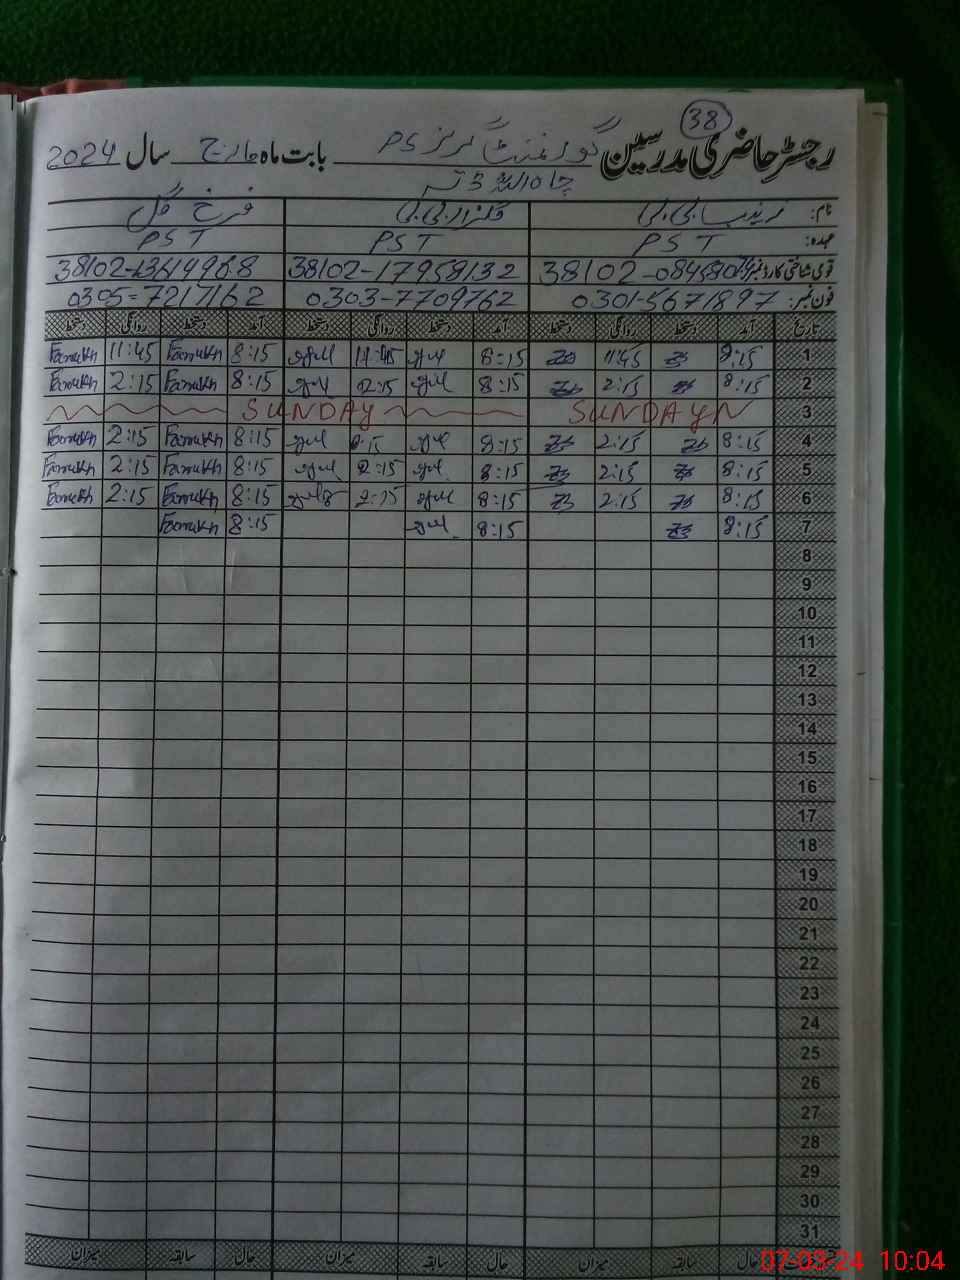 38
رجسٹر حاضری مدرسین گورنمنٹ گرلز PS بابت ماہ مارچ سال 2024
نام: زینب بی بی گلزار بی بی فرخ گل
عہدہ: PST PST PST
قومی شناختی کارڈ نمبر 38102-17958132
فون نمبر: 0301-5671897 0303-7709762 0305-7217162
تاریخ آمد دستخط روانگی دستخط آمد دستخط روانگی دستخط آمد دستخط روانگی دستخط
1 8:15 11:45 8:15 11:45 8:15 Farrukh 11:45 Farrukh
2 8:15 2:15 8:15 2:15 8:15 Farrukh 2:15 Farrukh
3 SUNDAY SUNDAY
4 8:15 2:15 8:15 2:15 8:15 Farrukh 2:15 Farrukh
5 8:15 2:15 8:15 2:15 8:15 Farrukh 2:15 Farrukh
6 8:15 2:15 8:15 2:15 8:15 Farrukh 2:15 Farrukh
7 8:15 8:15 8:15 Farrukh
8
9
10
11
12
13
14
15
16
17
18
19
20
21
22
23
24
25
26
27
28
29
30
31
حال سابقہ میزان حال سابقہ میزان حال سابقہ میزان
07-03-24 10:04